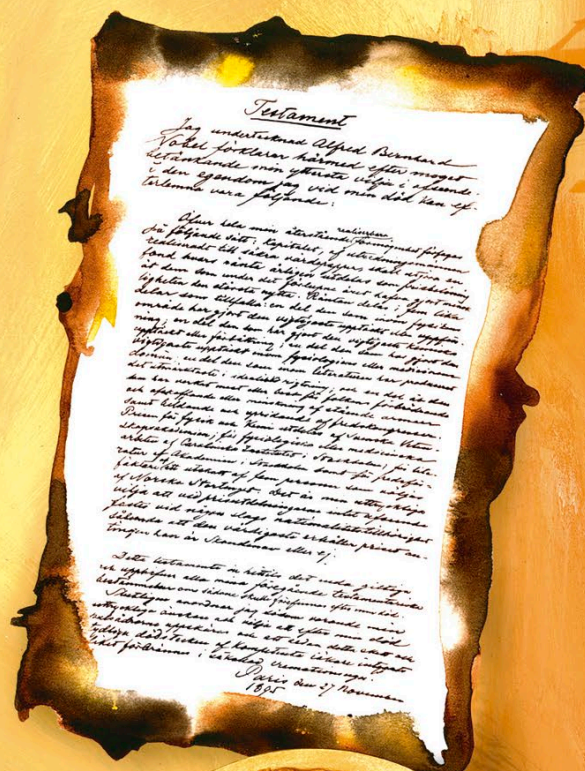 Testament
Jag undertecknad Alfred Bernhard
Nobel förklarar härmed efter moget
betänkande min yttersta vilja i afseende
i den egendom jag vid min död kan ef-
terlemna vara följande:
Öfver hela min återstående realiserbara förmögenhet förfogas
på följande sätt: Kapitalet, af utredningsmännen
realiseradt till säkra värdepapper, skall utgöra en
fond hvars ränta årligen utdelas som prisbelöning
åt dem som under det förlupne året hafva gjort
den största nytta. Räntan delas i fem lika
delar som tillfalla: en del den som inom fysikens
område har gjort den vigtigaste upptäckt eller uppfin-
ning; en del den som har gjort den vigtigaste kemiska
upptäckt eller förbättring; en del den som har gjort den
vigtigaste upptäckt inom fysiologiens eller medicinens
domän; en del den som inom literaturen har producerat
det utmärktaste i idealisk rigtning; och en del åt den
som har verkat mest eller best för folkens förbrödrande
och afskaffande eller minskning af stående armeer
samt bildande och spridande af fredskongresser.
Prisen för fysik och kemi utdelas af Svenska Veten-
skapsakademien; för fysiologiska eller medicinska
arbeten af Carolinska Institutet i Stockholm; för lite-
ratur af Akademien i Stockholm samt för fredsför-
fäktare af ett utskott af fem personer som väljas
af Norska Stortinget. Det är min uttryckliga
vilja att vid prisutdelningarne intet afseende
fästes vid någon slags nationalitetstillhörighet
sålunda att den värdigaste erhåller priset an-
tingen han är Skandinav eller ej.
Detta testamente är hittills det enda giltiga
och upphäfver alla mina föregående testamentariska
bestämmelser om sådane skulle förefinnas efter min död.
Slutligen anordnar jag såsom varande min
uttryckliga önskan och vilja att efter min död
pulsådrorna uppskäras och att sedan detta skett och
tydliga dödstecken af kompetente läkare intygats
liket förbrännes i såkallad crematorieugn.
Paris den 27 November
1895